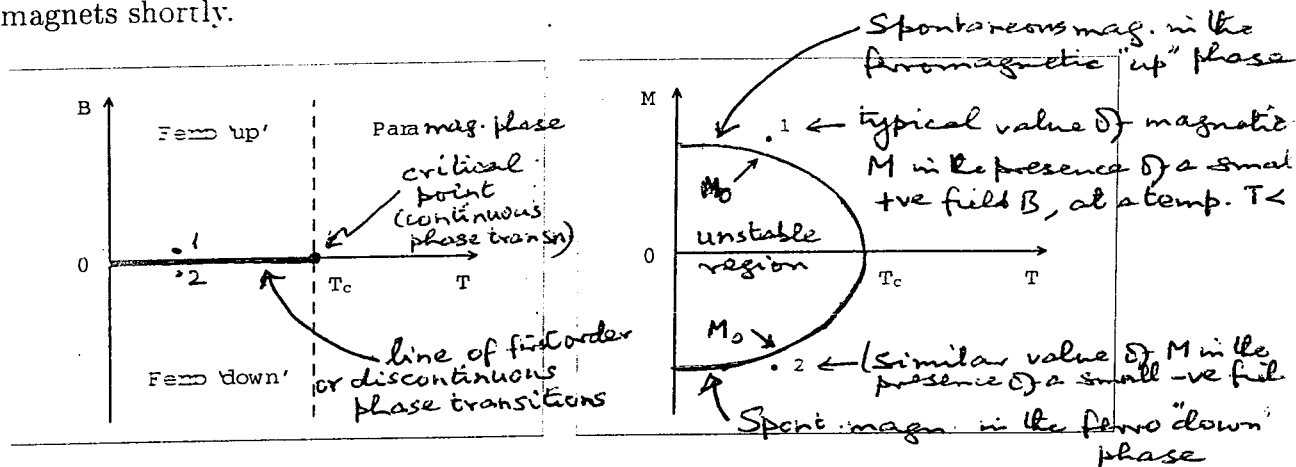 magnets shortly.
B
Ferro 'up'
Paramag. phase
critical
point
(continuous
phase transn)
1
0
2
Tc
T
line of first order
or discontinuous
phase transitions
Ferro 'down'
Spontaneous mag. in the
ferromagnetic "up" phase
M
1 ← typical value of magnetic
M in the presence of a small
+ve field B, at a temp. T<
M0
unstable
region
0
Tc
T
M0
2 ← (similar value of M in the
presence of a small -ve
Spont. magn. in the ferro "down"
phase